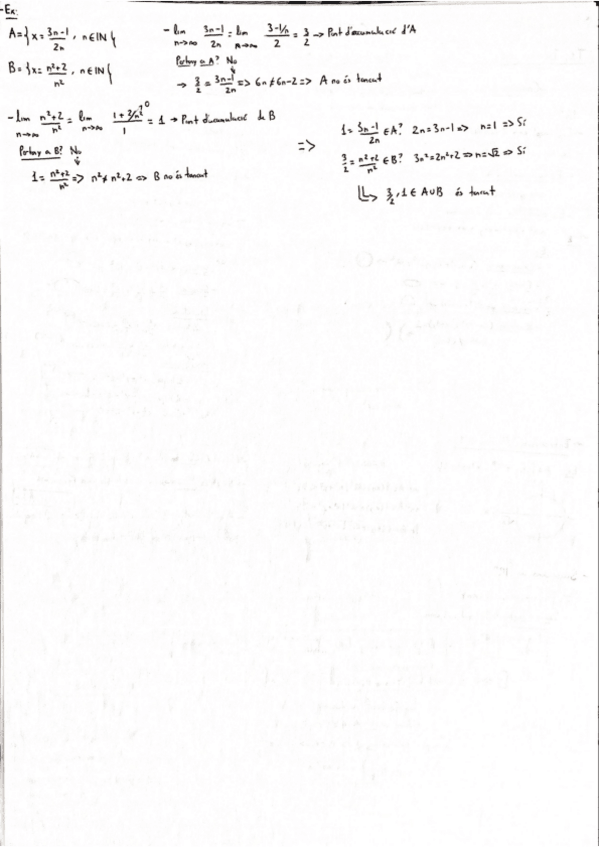 -Ex:
A={x=\frac{3n-1}{2n}, n∈IN}
B={x=\frac{n²+2}{n²}, n∈IN}
-lim_{n→∞} \frac{3n-1}{2n} = lim_{n→∞} \frac{3-1/n}{2} = \frac{3}{2} → Punt d'acumulació d'A
Pertany a A? No
→ \frac{3}{2} = \frac{3n-1}{2n} => 6n ≠ 6n-2 => A no és tancat
-lim_{n→∞} \frac{n²+2}{n²} = lim_{n→∞} \frac{1+2/n²→0}{1} = 1 → Punt d'acumulació de B
Pertany a B? No
1 = \frac{n²+2}{n²} => n² ≠ n²+2 => B no és tancat
=>
1 = \frac{3n-1}{2n} ∈ A? 2n=3n-1 => n=1 => Sí
\frac{3}{2} = \frac{n²+2}{n²} ∈ B? 3n²=2n²+2 => n=√2 => Sí
↳ \frac{3}{2}, 1 ∈ A∪B és tancat